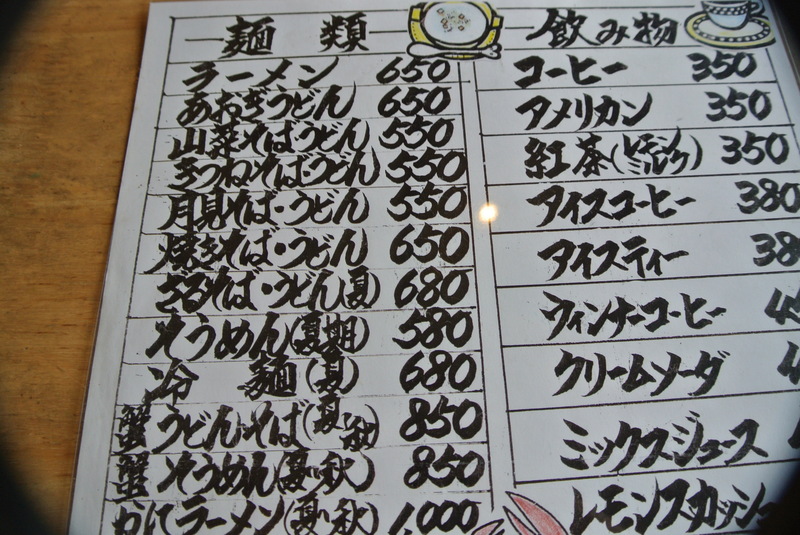 麺 類
ラーメン 650
あおさうどん 650
山菜そば・うどん 550
きつねそば・うどん 550
月見そば・うどん 550
焼きそば・うどん 650
ざるそば・うどん(夏) 680
そうめん(夏期) 580
冷 麺(夏) 680
蟹うどん・そば(夏・秋) 850
蟹そうめん(夏・秋) 850
かにラーメン(夏・秋) 1,000
飲み物
コーヒー 350
アメリカン 350
紅茶(レモン・ミルク) 350
アイスコーヒー 380
アイスティー 38
ウィンナーコーヒー
クリームソーダ
ミックスジュース
レモンスカッシュ